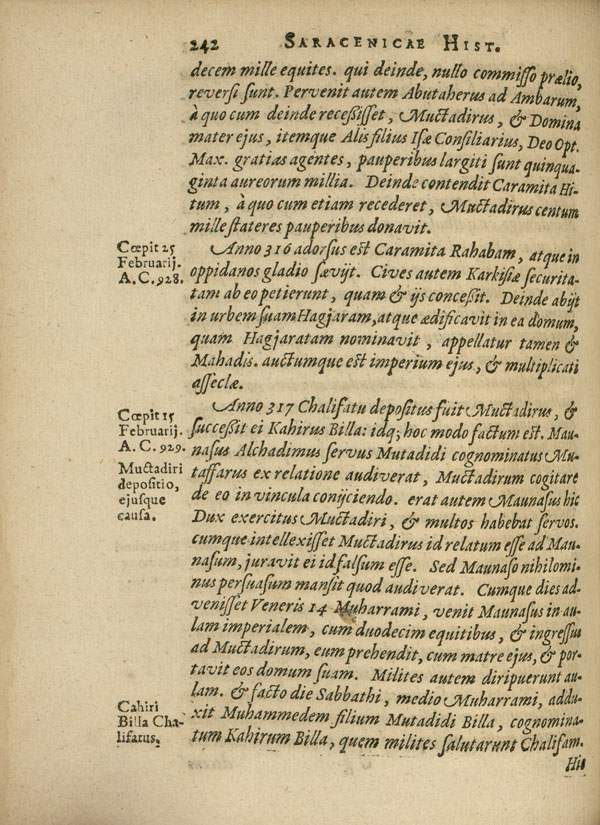 242 SARACENICAE HIST.
decem mille equites. qui deinde, nullo commisso prælio,
reversi sunt. Pervenit autem Abutaherus ad Ambarum,
à quo cum deinde recessisset, Muctadirus, & Domina
mater ejus, itemque Alis filius Isæ Consiliarius, Deo Opt.
Max. gratias agentes, pauperibus largiti sunt quinqua-
ginta aureorum millia. Deinde contendit Caramita Hi-
tum, à quo cum etiam recederet, Muctadirus centum
mille stateres pauperibus donavit.
Cœpit 25
Februarij.
A. C. 928.
Anno 316 adorsus est Caramita Rahabam, atque in
oppidanos gladio sævijt. Cives autem Karkisiæ securita-
tam ab eo petierunt, quam & ijs concessit. Deinde abijt
in urbem suam Hagjaram, atque ædificavit in ea domum,
quam Hagjaratam nominavit, appellatur tamen &
Mahadis. auctumque est imperium ejus, & multiplicati
asseclæ.
Cœpit 15
Februarij.
A. C. 929.
Muctadiri
depositio,
ejusque
causa.
Anno 317 Chalifatu depositus fuit Muctadirus, &
successit ei Kahirus Billa: idq; hoc modo factum est. Mau-
nasus Alchadimus servus Mutadidi cognominatus Mu-
taffarus ex relatione audiverat, Muctadirum cogitare
de eo in vincula conijciendo. erat autem Maunasus hic
Dux exercitus Muctadiri, & multos habebat servos.
cumque intellexisset Muctadirus id relatum esse ad Mau-
nasum, juravit ei id falsum esse. Sed Maunaso nihilomi-
nus persuasum mansit quod audiverat. Cumque dies ad-
venisset Veneris 14 Muharrami, venit Maunasus in au-
lam imperialem, cum duodecim equitibus, & ingressus
ad Muctadirum, eum prehendit, cum matre ejus, & por-
tavit eos domum suam. Milites autem diripuerunt au-
lam. & facto die Sabbathi, medio Muharrami, addu-
xit Muhammedem filium Mutadidi Billa, cognomina-
tum Kahirum Billa, quem milites salutarunt Chalifam.
Cahiri
Billa Cha-
lifatus.
Hic